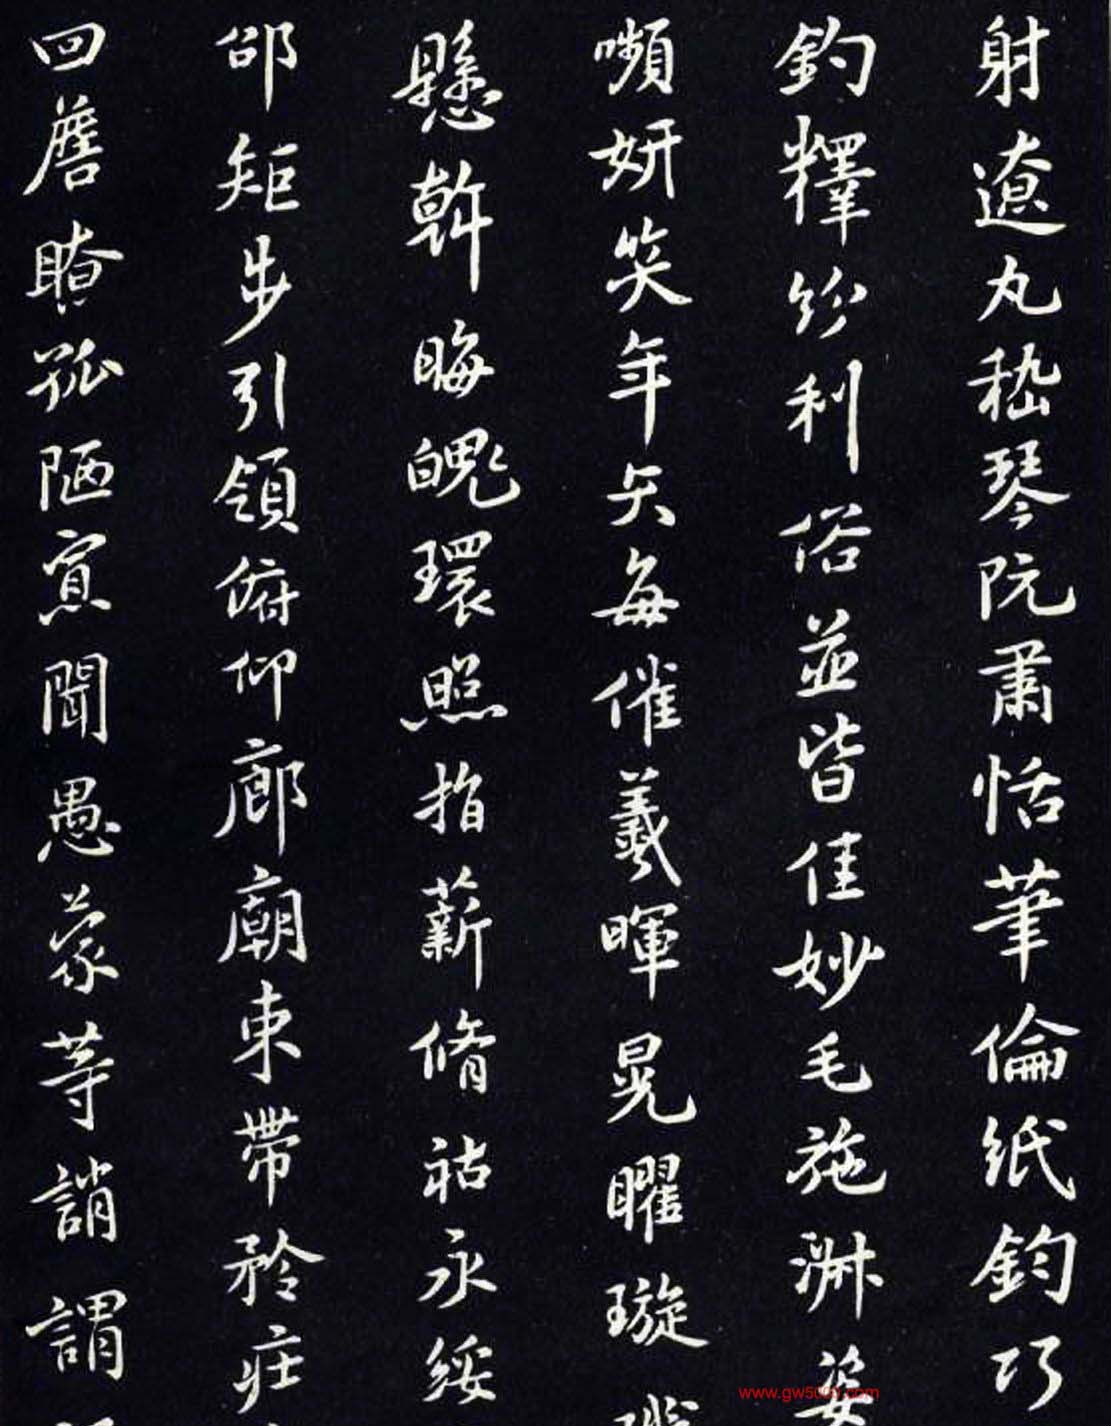 射遼丸嵇琴阮肅恬筆倫紙鈞巧
釣釋紛利俗並皆佳妙毛施淑姿
嚬妍笑年矢每催羲暉晃曜璇
懸斡晦魄環照指薪脩祜永綏
邵矩步引領俯仰廊廟束帶矜莊
回詹瞭孤陋寡聞愚蒙等誚謂
www.gw5000.com